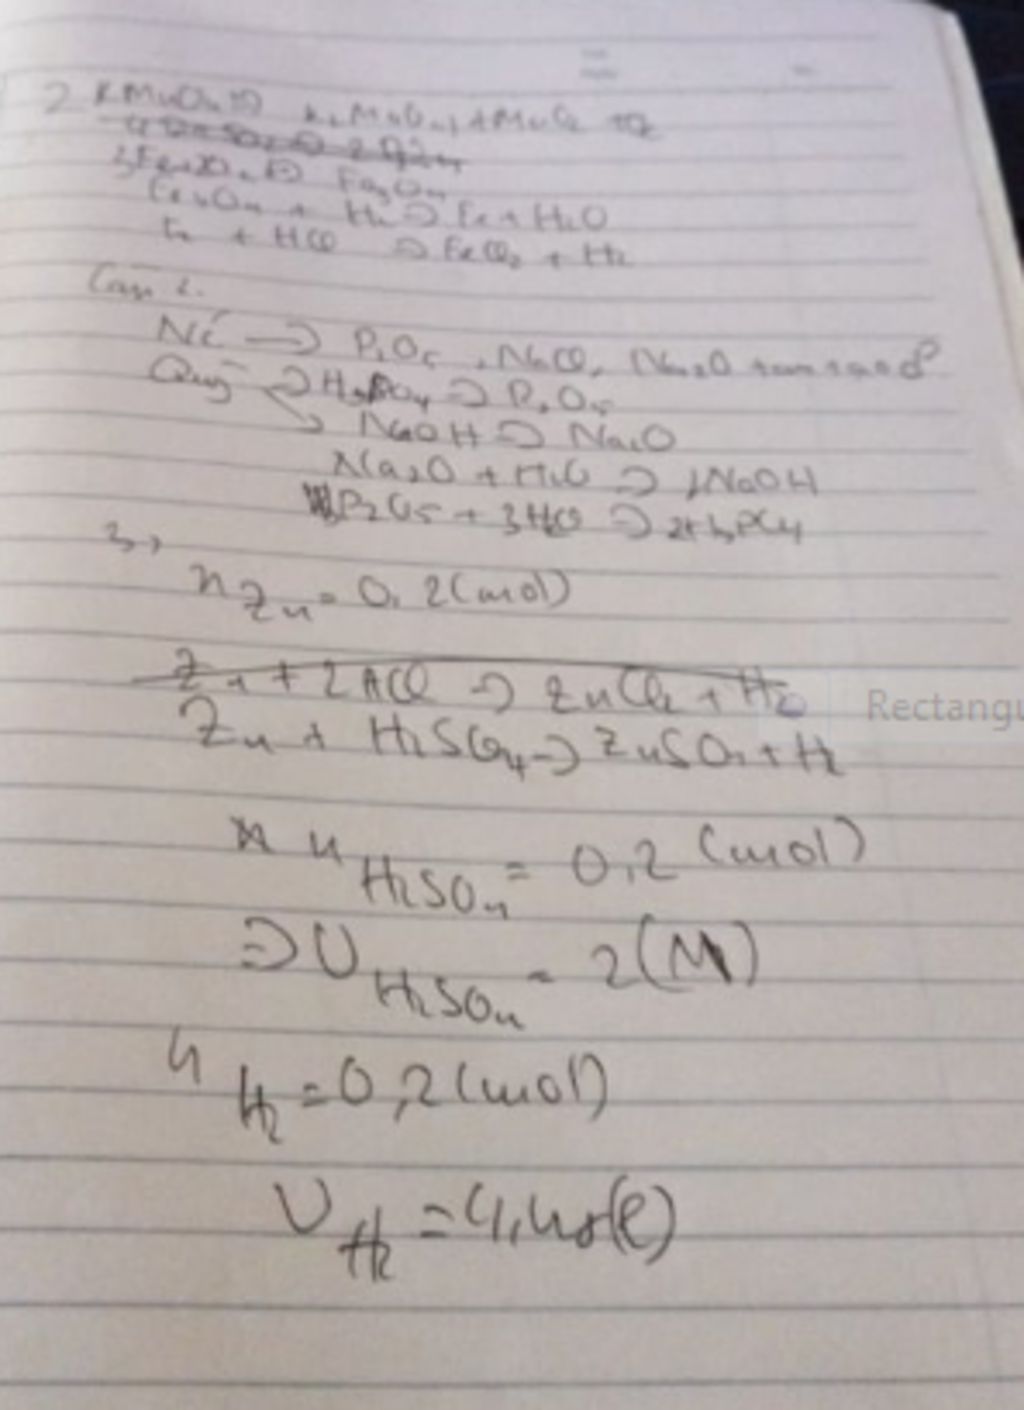 2 KMnO4 => K2MnO4 + MnO2 + O2
Fe3O4
Fe3O4 + H2 => Fe + H2O
Fe + HCl => FeCl2 + H2
Câu 2.
=> P2O5, NaCl, Na2O
Quỳ => H3PO4 => P2O5
NaOH => Na2O
Na2O + H2O => 2NaOH
P2O5 + 3H2O => 2H3PO4
3,
nZn = 0,2 (mol)
Zn + 2HCl => ZnCl2 + H2
Rectangu
Zn + H2SO4 -> ZnSO4 + H2
n H2SO4 = 0,2 (mol)
=> U H2SO4 = 2 (M)
n H2 = 0,2 (mol)
V H2 = 4,48 (l)